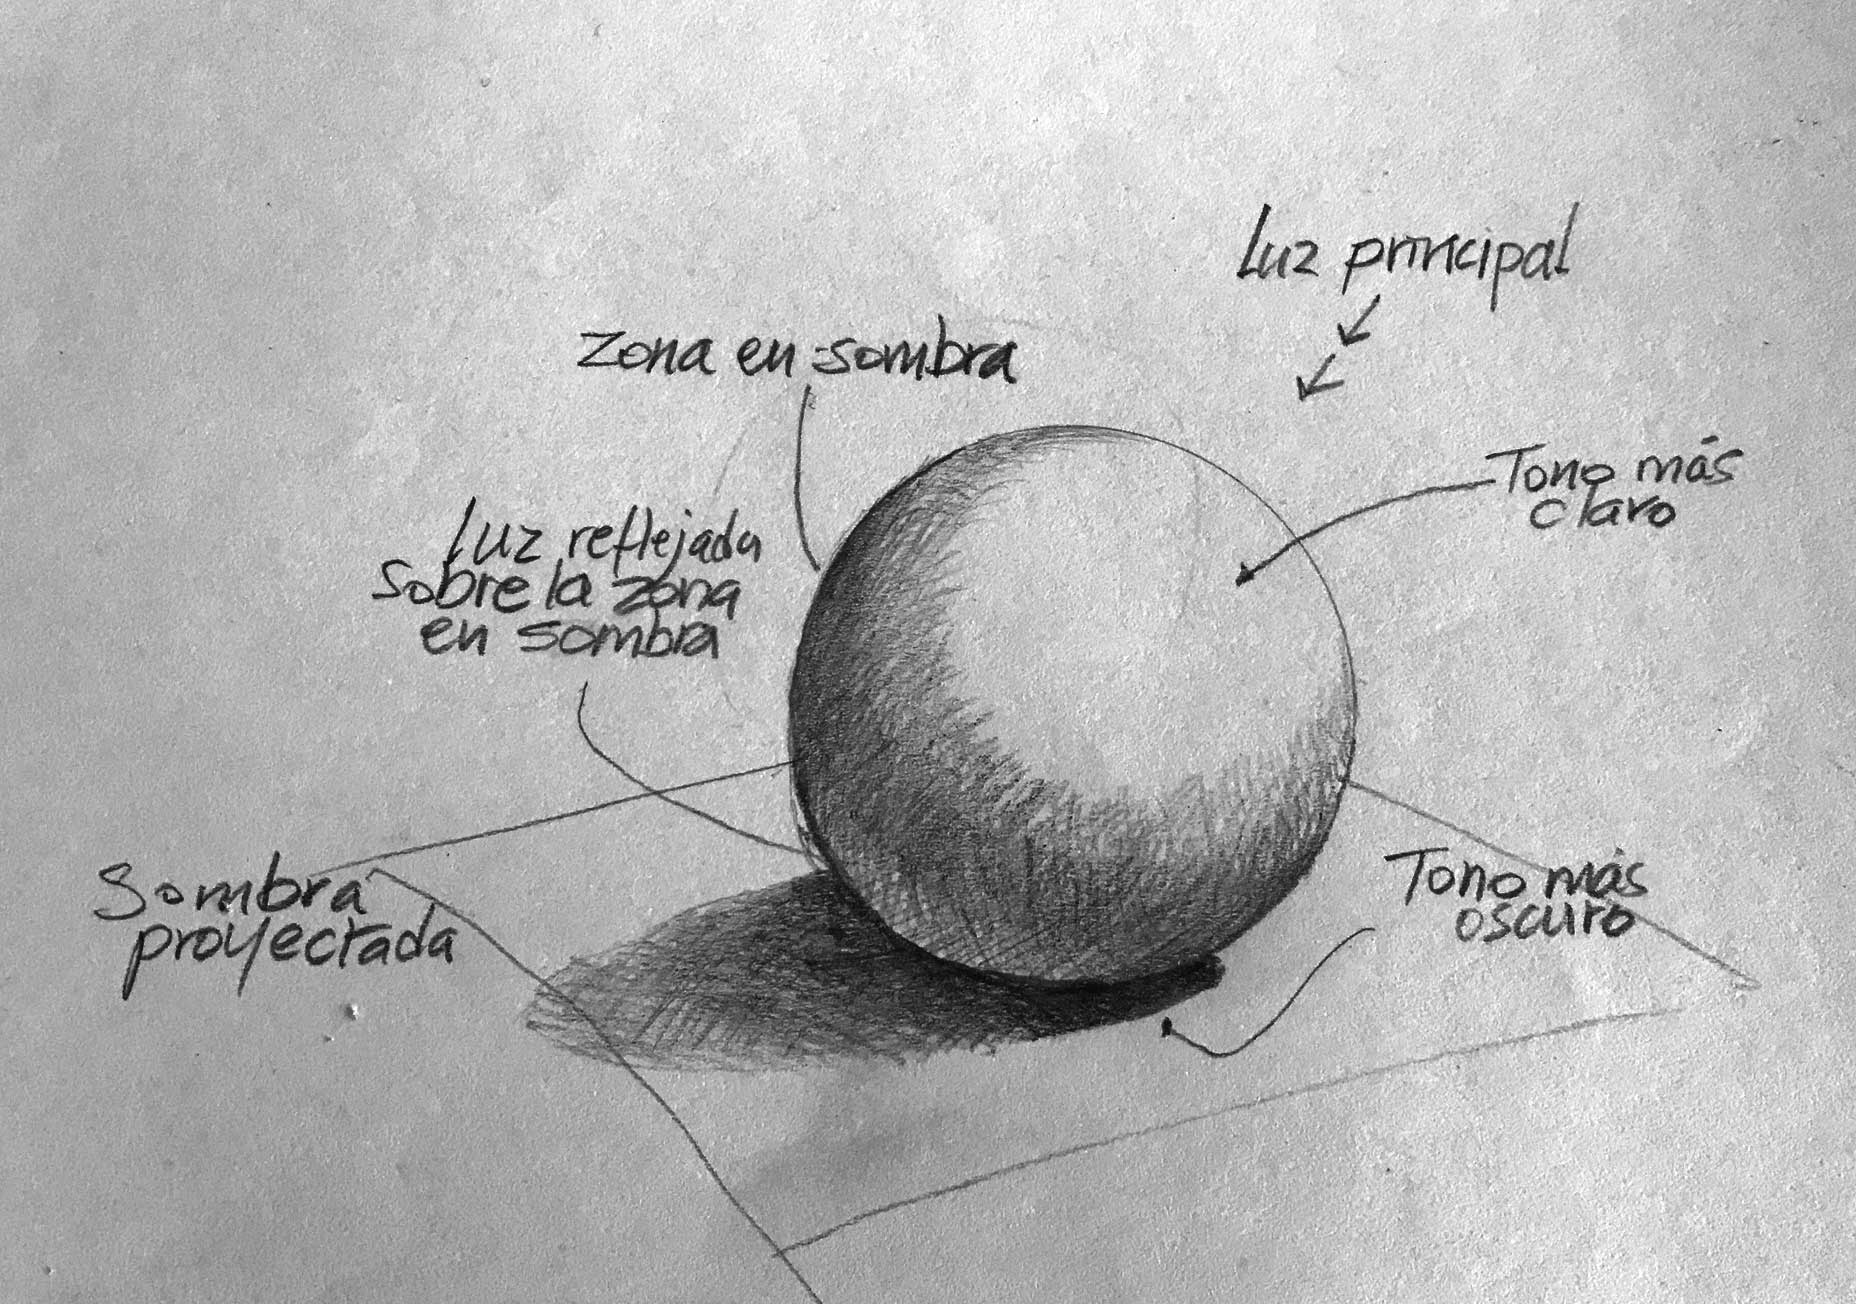 Luz principal
Zona en sombra
Tono más
claro
Luz reflejada
sobre la zona
en sombra
Sombra
proyectada
Tono más
oscuro